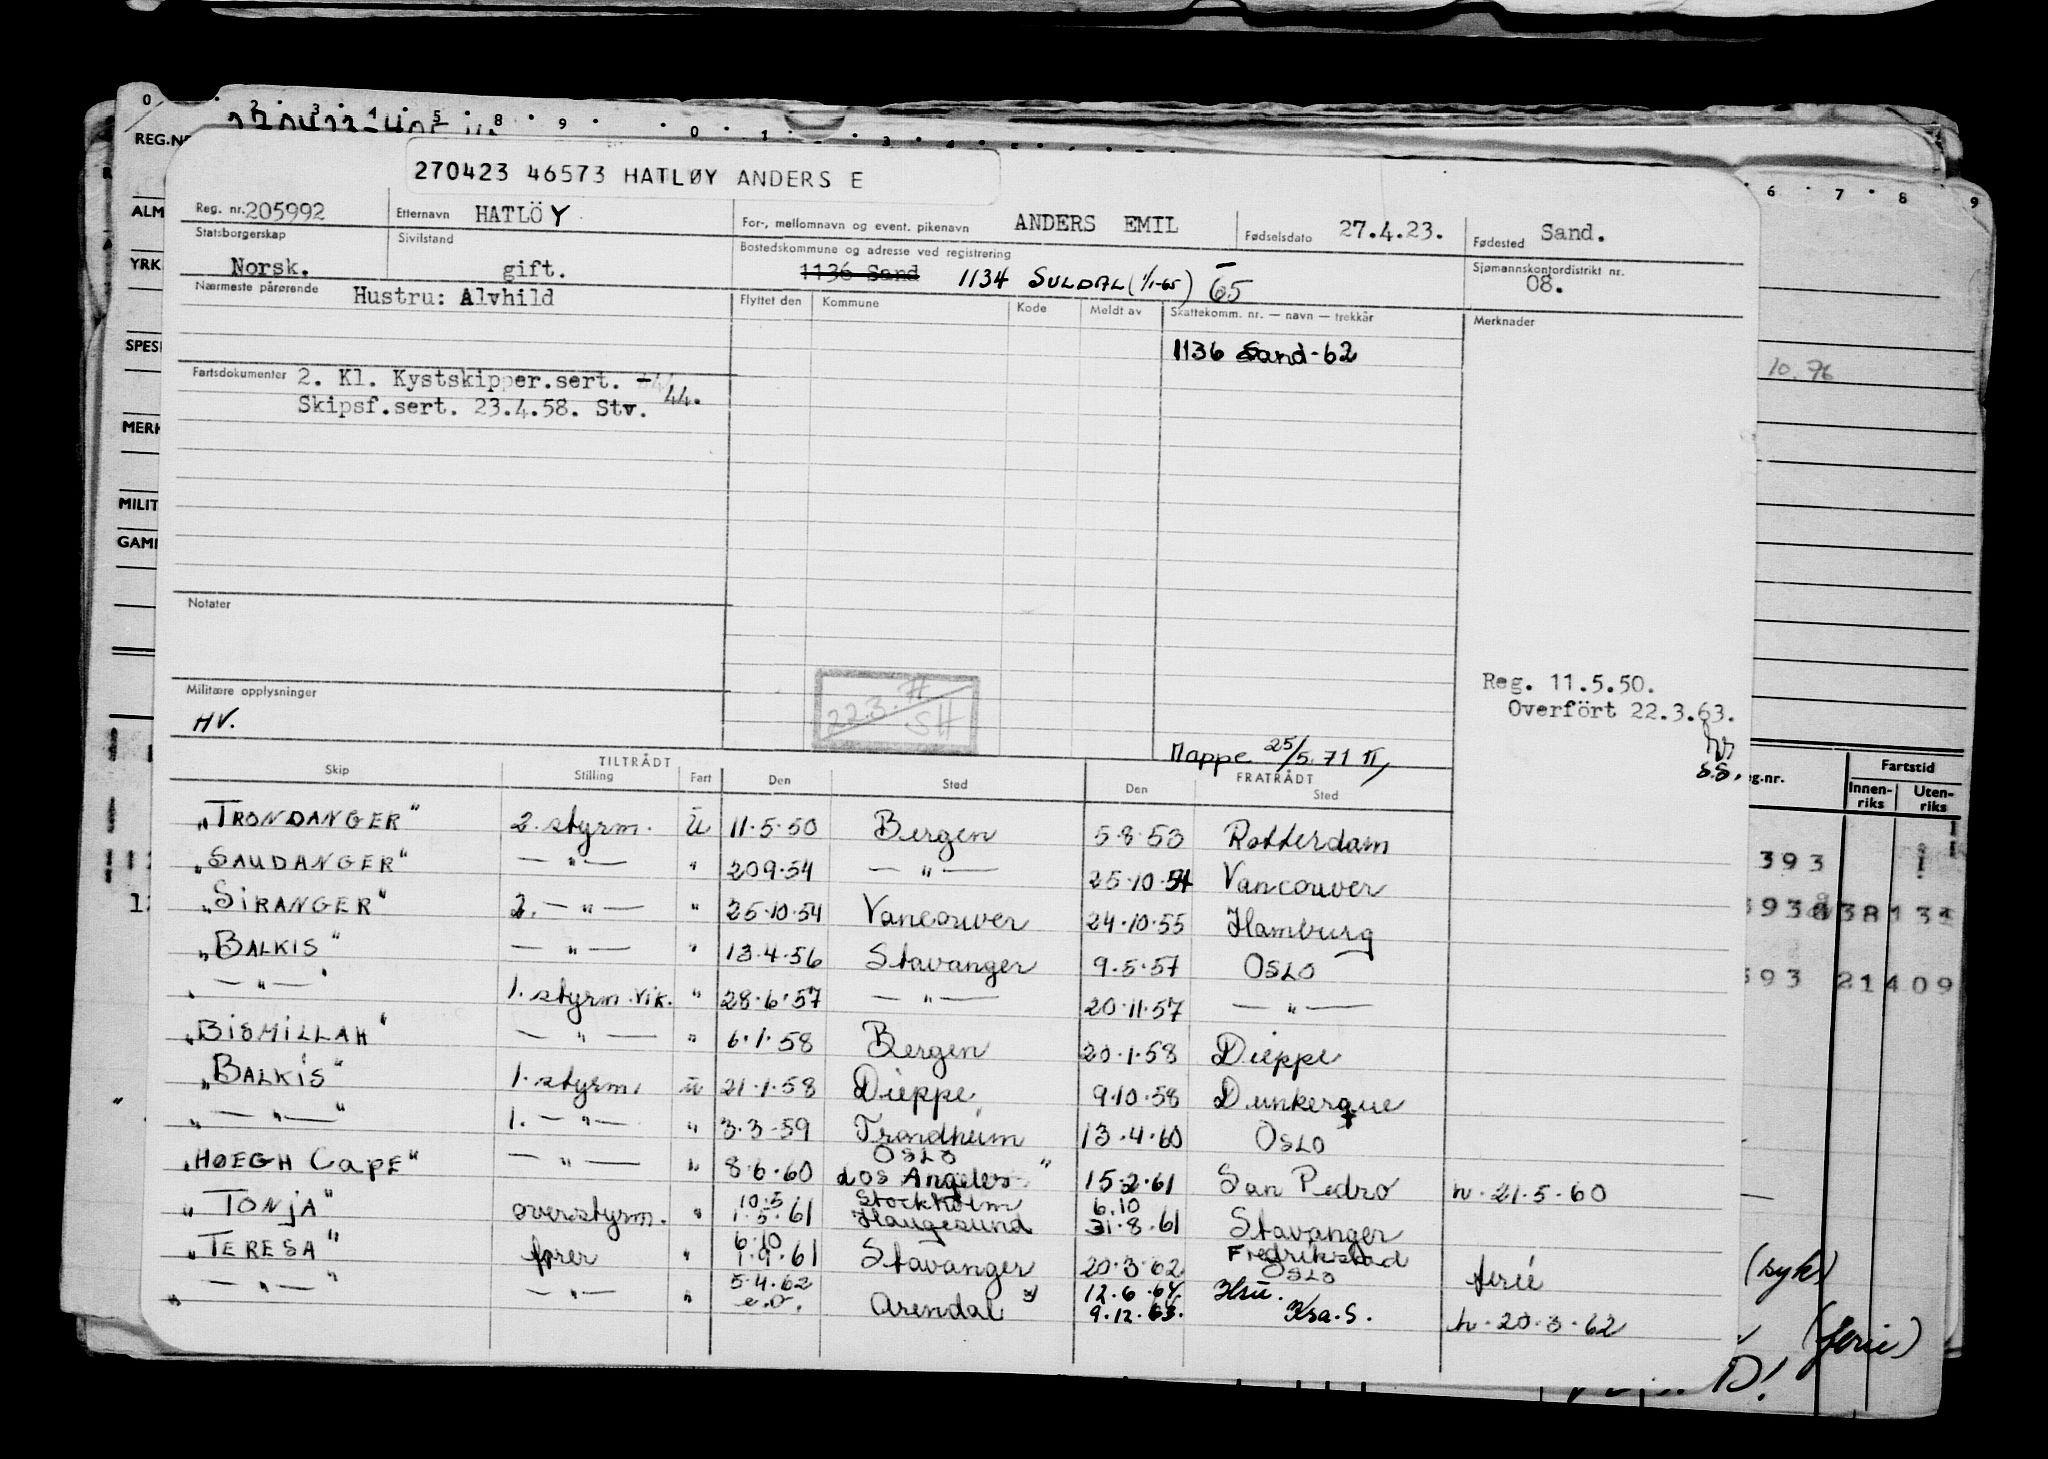 270423 46573 HATLØY ANDERS E
Reg. nr. 205992 Etternavn HATLÖY For-, mellomnavn og event. pikenavn ANDERS EMIL Fødselsdato 27.4.23. Fødested Sand.
Statsborgerskap Norsk. Sivilstand gift. Bostedskommune og adresse ved registrering 1136 Sand 1134 SULDAL (1/1-65) 65 Sjømannskontordistrikt nr. 08.
Nærmeste pårørende Hustru: Alvhild Flyttet den Kommune Kode Meldt av Skattekomm. nr. — navn — trekkår Merknader
1136 Sand-62
Fartsdokumenter 2. Kl. Kystskipper.sert. 44.
Skipsf.sert. 23.4.58. Stv.
Notater
Militære opplysninger
HV.
22.3.71 SH
Reg. 11.5.50.
Overfört 22.3.63.
S.S.
Mappe 25/5.71
TILTRÅDT FRATRÅDT
Skip Stilling Fart Den Sted Den Sted
„TRONDANGER" 2. styrm. U 11.5.50 Bergen 5.8.53 Rotterdam
„SAUDANGER" — " — " 20.9.54 — " — 25.10.54 Vancouver
„SIRANGER" 2. — " — " 25.10.54 Vancouver 24.10.55 Hamburg
„BALKIS" — " — " 13.4.56 Stavanger 9.5.57 OSLO
„ — " — " 1. styrm. vik. " 28.6.57 — " — 20.11.57 — " —
„BISMILLAH" — " — " 6.1.58 Bergen 20.1.58 Dieppe
„BALKIS" 1. styrm. u 21.1.58 Dieppe 9.10.58 Dunkerque
„ — " — " 1. — " — " 3.3.59 Trondheim 13.4.60 OSLO
„HØEGH CAPE" — " — " 8.6.60 OSLO Los Angeles 15.2.61 San Pedro h. 21.5.60
„TONJA" overstyrm. " 10.5 1.5.61 Stockholm Haugesund 6.10 31.8.61 Stavanger
„TERESA" fører " 6.10 1.9.61 Stavanger 20.3.62 Fredrikstad OSLO ferie
„ — " — " — " — " 5.4.62 e.o. Arendal 12.6.64. Hsu. h. 20.3.62
9.12.65. Krsa.S.
REG.N
ALM
YRK
SPES
MERK
MILIT
GAM
10.76
Fartstid
Innen-riks Uten-riks
393
393 21409
(syk)
(ferie)